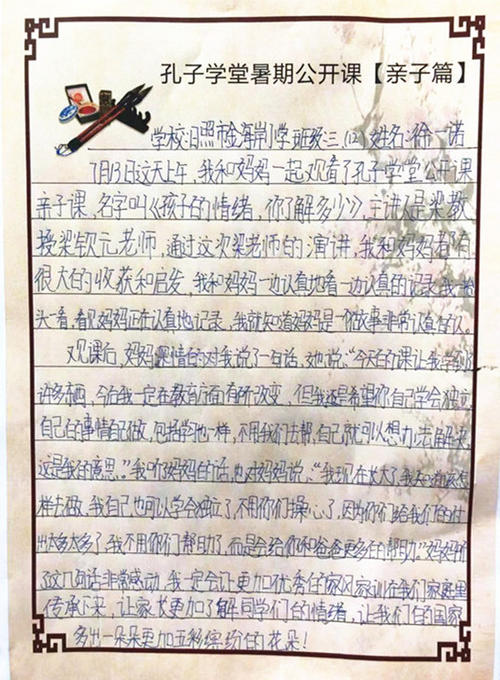 孔子学堂暑期公开课【亲子篇】
学校:日照市金海岸小学 班级:三.(2) 姓名:徐一诺
7月13日这天上午，我和妈妈一起观看了孔子学堂公开课
亲子课，名字叫《孩子的情绪，你了解多少》，主讲人是梁教
授梁钦元老师，通过这次梁老师的演讲，我和妈妈都有
很大的收获和启发，我和妈妈一边认真地看一边认真的记录，我一抬
头一看，看见妈妈正在认真地记录，我就知道妈妈是一个做事非常认真的人。
观课后，妈妈深情的对我说了一句话，她说：“今天的课让我学到了
许多东西，今后我一定在教育方面有所改变，但我还是希望你自己学会独立
自己的事情自己做，包括学习也一样，不用我们去帮，自己就可以想办法解决
这是我的意思。”我听妈妈的话，也对妈妈说：“我现在长大了，我知道该怎
样去做，我自己也可以学会独立了，不用你们操心了，因为你们给我们的付
出太多太多了，我不用你们帮助了，而是会给你和爸爸更多的帮助。”妈妈听
了这几句话非常感动，我一定会让更加优秀的家风家训在我们家庭里
传承下来，让家长更加了解同学们的情绪，让我们的国家
多出一朵朵更加五彩缤纷的花朵！